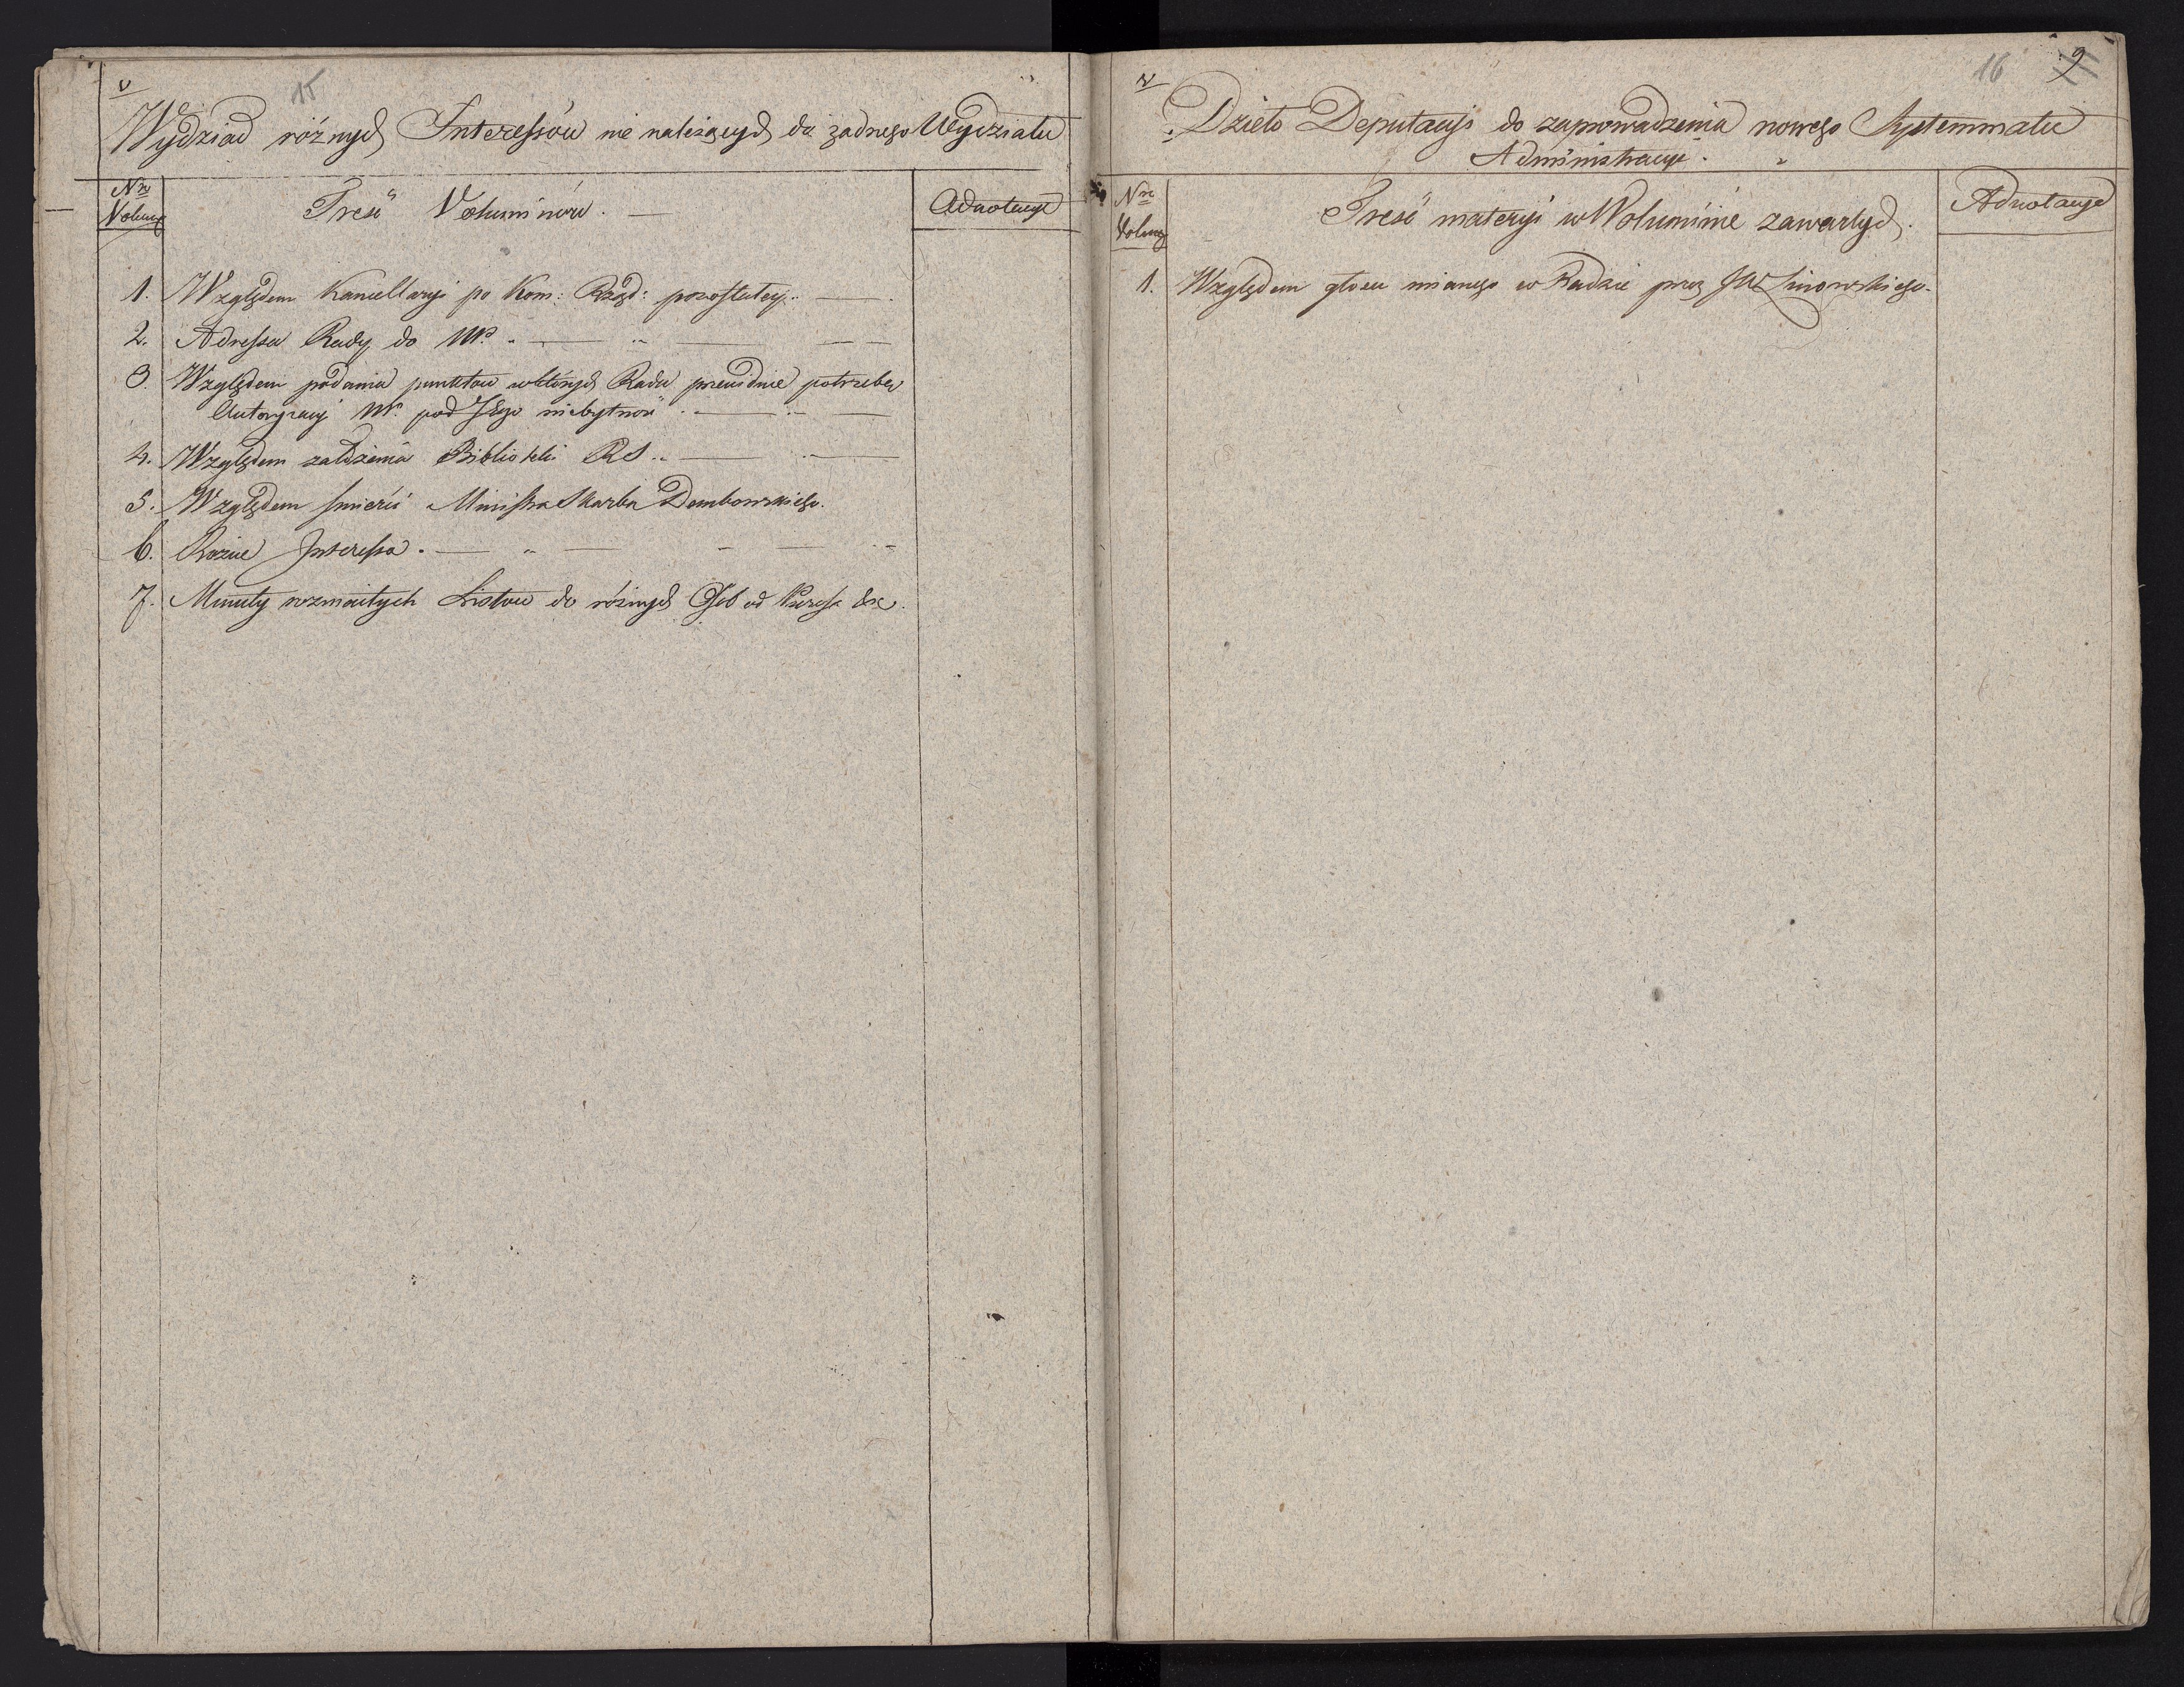 15
Wydział różnych Interessów nie należących do żadnego Wydziału
Nro Volum
Treść Voluminów.
Adnotacye
1. Względem Kancellaryi po Kom: Rząd: pozostałey.
2. Adressa Rady do NP.
3. Względem podania punktow w których Rada przewiduie potrzebę
Autoryzacyi NP. pod Jego niebytność
4. Względem założenia Biblioteki RS.
5. Względem śmierci Ministra Skarbu Dembowskiego.
6. Rożne Interessa.
7. Minuty rozmaitych Listow do różnych Osób od Prezesa &c.
16 9
Dzieło Deputacyi do zaprowadzenia nowego Systemmatu
Administracyi.
Nro Volum
Treść materyi w Woluminie zawartych.
Adnotacye
1. Względem głosu mianego w Radzie przez JW Linowskiego.